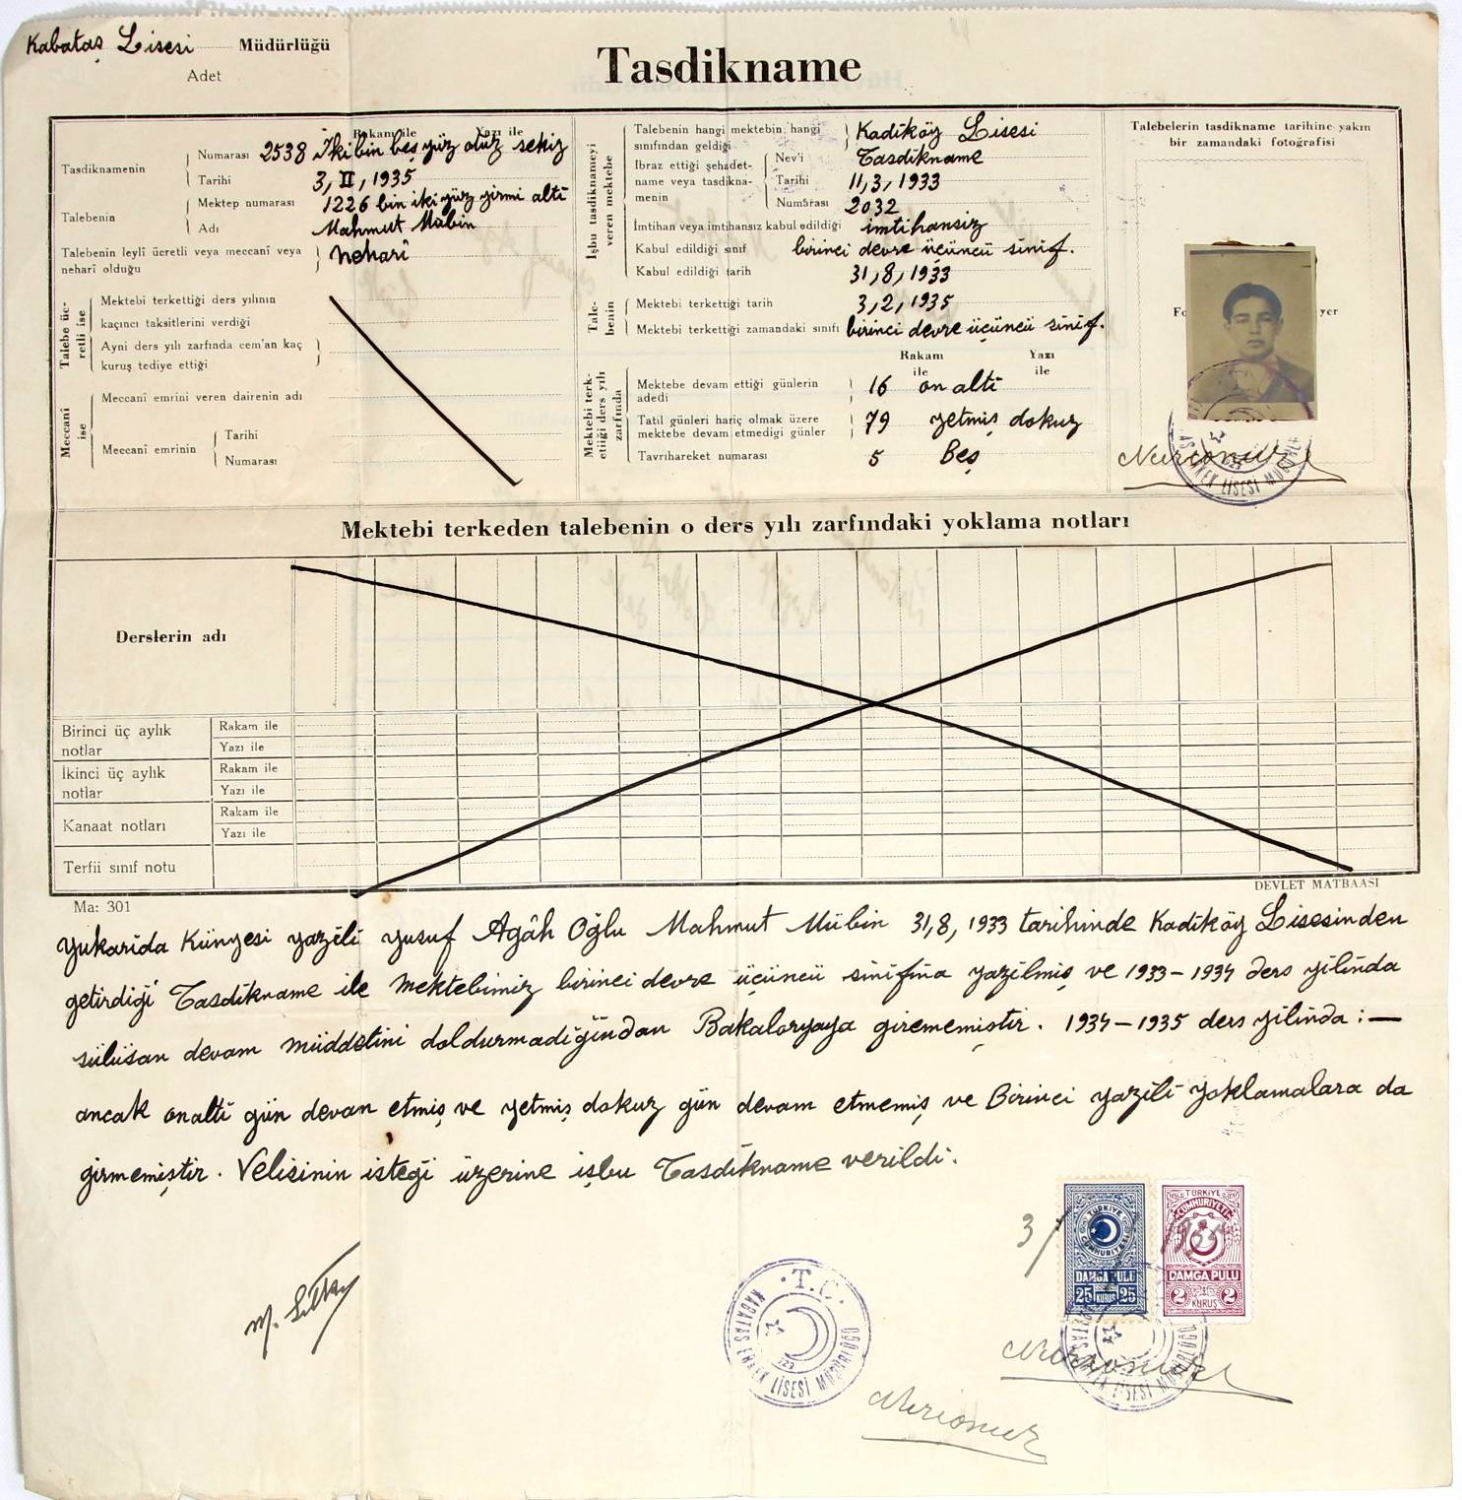 Kabataş Lisesi Müdürlüğü
Adet
Tasdikname
Rakam ile Yazı ile
Tasdiknamenin
Numarası 2538 İki bin beş yüz otuz sekiz
Tarihi 3, II, 1935
Talebenin
Mektep numarası 1226 bin iki yüz yirmi altı
Adı Mahmut Mübin
Talebenin leylî ücretli veya meccanî veya
neharî olduğu
neharî
Talebe üc-
retli ise
Mektebi terkettiği ders yılının
kaçıncı taksitlerini verdiği
Ayni ders yılı zarfında cem'an kaç
kuruş tediye ettiği
Meccanî
ise
Meccanî emrini veren dairenin adı
Meccanî emrinin
Tarihi
Numarası
İşbu tasdiknameyi
veren mektebe
Talebenin hangi mektebin hangi
sınıfından geldiği
Kadıköy Lisesi
İbraz ettiği şehadet-
name veya tasdikna-
menin
Nev'i Tasdikname
Tarihi 11,3,1933
Numarası 2032
İmtihan veya imtihansız kabul edildiği imtihansız
Kabul edildiği sınıf birinci devre üçüncü sinif.
Kabul edildiği tarih 31,8,1933
Tale-
benin
Mektebi terkettiği tarih 3,2,1935
Mektebi terkettiği zamandaki sınıfı birinci devre üçüncü sinif.
Rakam ile Yazı ile
Mektebi terk-
ettiği ders yılı
zarfında
Mektebe devam ettiği günlerin
adedi
16 on altı
Tatil günleri hariç olmak üzere
mektebe devam etmedigi günler
79 yetmiş dokuz
Tavrıhareket numarası 5 Beş
Talebelerin tasdikname tarihine yakın
bir zamandaki fotoğrafisi
yer
Mektebi terkeden talebenin o ders yılı zarfındaki yoklama notları
Derslerin adı
Birinci üç aylık
notlar
Rakam ile
Yazı ile
İkinci üç aylık
notlar
Rakam ile
Yazı ile
Kanaat notları
Rakam ile
Yazı ile
Terfii sınıf notu
DEVLET MATBAASI
Ma: 301
yukarıda Künyesi yazılı yusuf Agâh Oğlu Mahmut Mübin 31,8,1933 tarihinde Kadıköy Lisesinden
getirdiği Tasdikname ile mektebimiz birinci devre üçüncü sinifina yazilmiş ve 1933-1934 ders yilinda
sülüsan devam müddetini doldurmadiğindan Bakaloryaya girememiştir. 1934-1935 ders yilinda :—
ancak onalti gün devam etmiş ve yetmiş dokuz gün devam etmemiş ve Birinci yazili yoklamalara da
girmemiştir. Velisinin isteği üzerine işbu Tasdikname verildi.
3/
TÜRKİYE
CUMHURİYETİ
DAMGA PULU
25 KURUŞ 25
TÜRKİYE
CUMHURİYETİ
DAMGA PULU
2 KURUŞ 2
T.C.
KABATAŞ ERKEK LİSESİ MÜDÜRLÜĞÜ